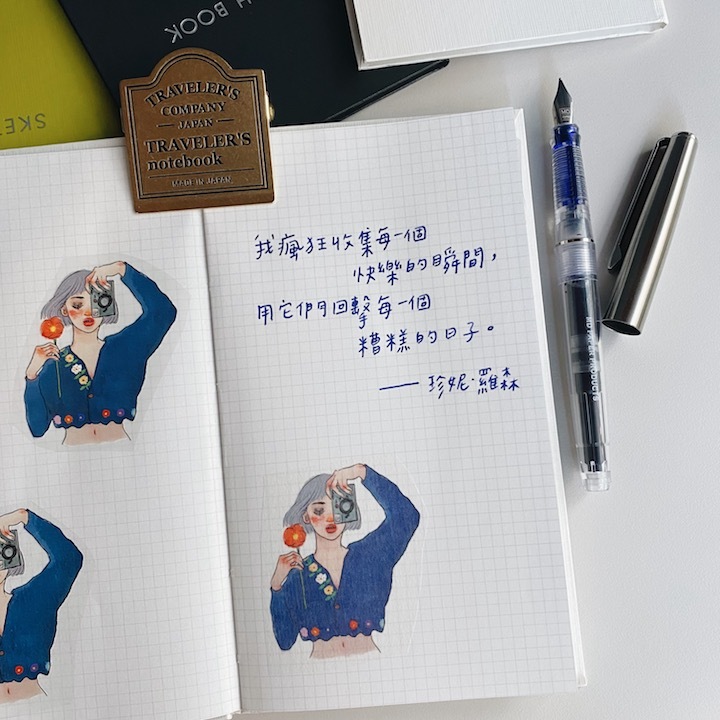 SKET
H BOOK
TRAVELER'S
COMPANY
— JAPAN —
TRAVELER'S
notebook
— MADE IN JAPAN —
我瘋狂收集每一個
快樂的瞬間，
用它們回擊每一個
糟糕的日子。
—— 珍妮·羅森